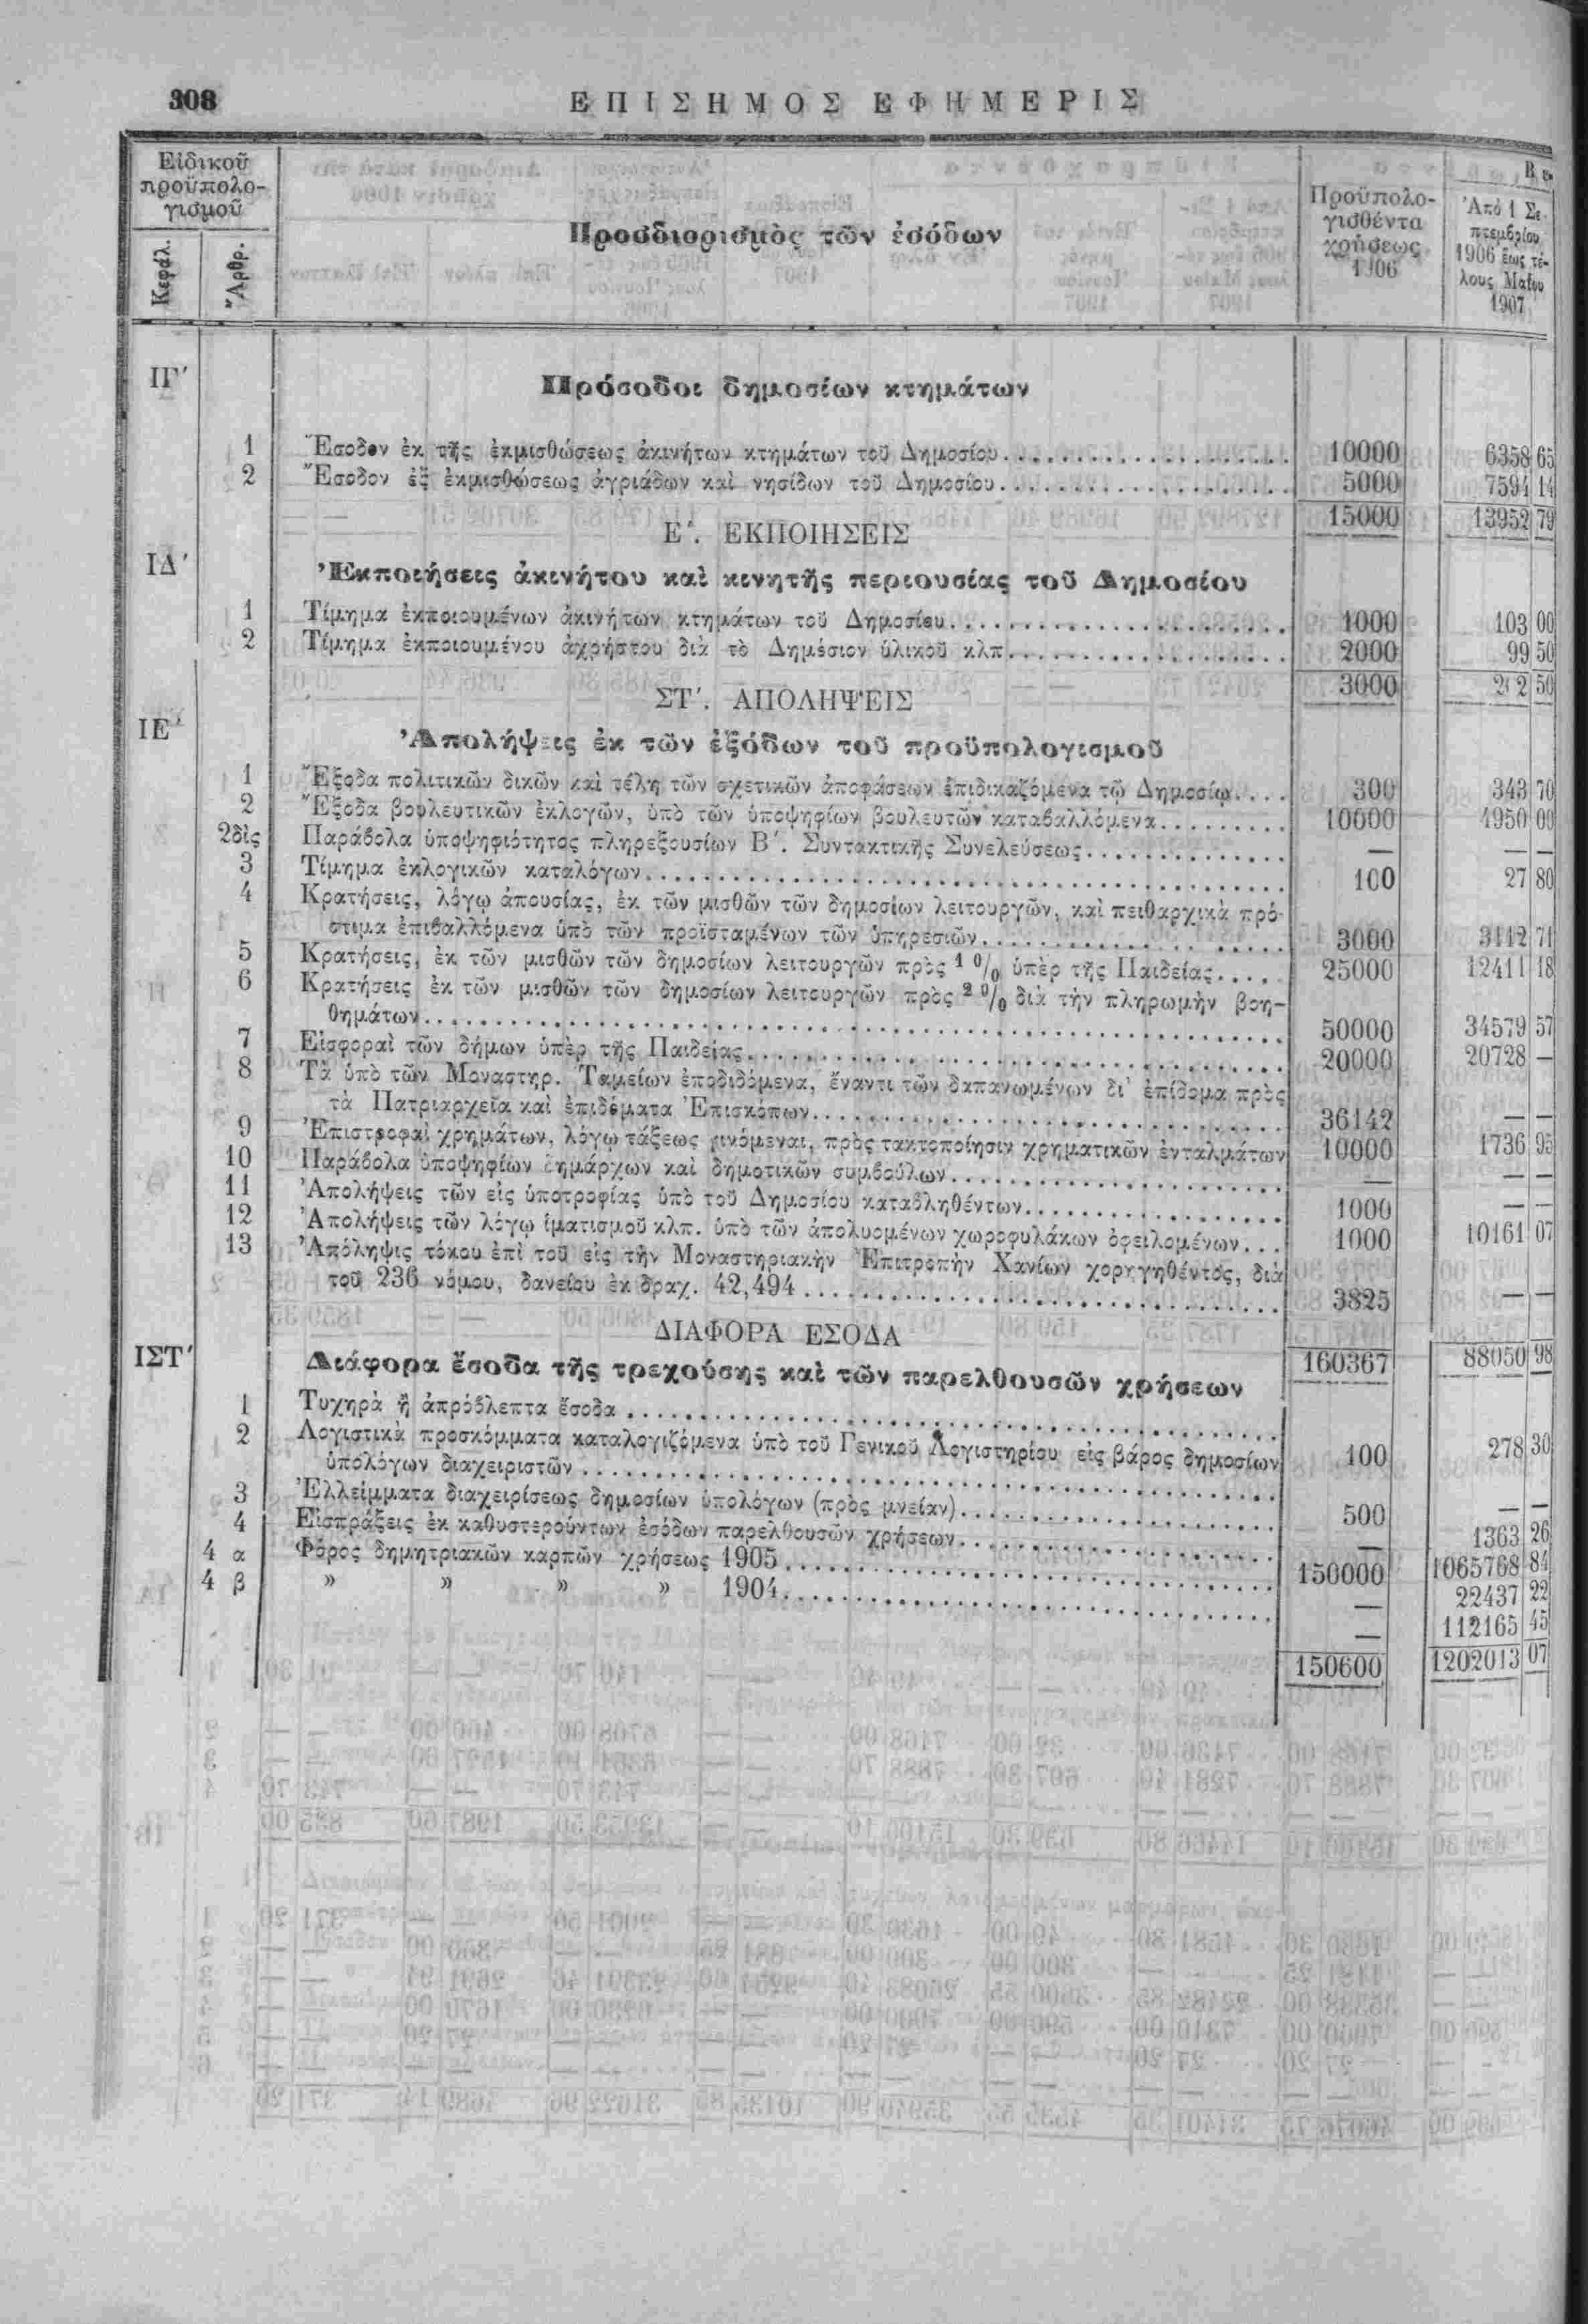 308
ΕΠΙΣΗΜΟΣ ΕΦΗΜΕΡΙΣ
Εἰδικοῦ
προϋπολο-
γισμοῦ
Κεφάλ.
Ἄρθρ.
Προσδιορισμὸς τῶν ἐσόδων
Προϋπολο-
γισθέντα
χρήσεως
1906
Ἀπό 1 Σε-
πτεμβρίου
1906 ἕως τέ-
λους Μαΐου
1907
ΙΓ′
Πρόσοδοι δημοσίων κτημάτων
1 Ἔσοδον ἐκ τῆς ἐκμισθώσεως ἀκινήτων κτημάτων τοῦ Δημοσίου 10000 6358 65
2 Ἔσοδον ἐξ ἐκμισθώσεως ἀγριάδων καὶ νησίδων τοῦ Δημοσίου 5000 7594 14
15000 13952 79
Ε′. ΕΚΠΟΙΗΣΕΙΣ
ΙΔ′ Ἐκποιήσεις ἀκινήτου καὶ κινητῆς περιουσίας τοῦ Δημοσίου
1 Τίμημα ἐκποιουμένων ἀκινήτων κτημάτων τοῦ Δημοσίου 1000 103 00
2 Τίμημα ἐκποιουμένου ἀχρήστου διὰ τὸ Δημόσιον ὑλικοῦ κλπ 2000 99 50
3000 202 50
ΣΤ′. ΑΠΟΛΗΨΕΙΣ
ΙΕ′ Ἀπολήψεις ἐκ τῶν ἐξόδων τοῦ προϋπολογισμοῦ
1 Ἔξοδα πολιτικῶν δικῶν καὶ τέλη τῶν σχετικῶν ἀποφάσεων ἐπιδικαζόμενα τῷ Δημοσίῳ 300 343 70
2 Ἔξοδα βουλευτικῶν ἐκλογῶν, ὑπὸ τῶν ὑποψηφίων βουλευτῶν καταβαλλόμενα 10000 4950 00
2δὶς Παράβολα ὑποψηφιότητος πληρεξουσίων Β′. Συντακτικῆς Συνελεύσεως — — —
3 Τίμημα ἐκλογικῶν καταλόγων 100 27 80
4 Κρατήσεις, λόγῳ ἀπουσίας, ἐκ τῶν μισθῶν τῶν δημοσίων λειτουργῶν, καὶ πειθαρχικὰ πρό-
στιμα ἐπιβαλλόμενα ὑπὸ τῶν προϊσταμένων τῶν ὑπηρεσιῶν 3000 3112 71
5 Κρατήσεις, ἐκ τῶν μισθῶν τῶν δημοσίων λειτουργῶν πρὸς 1 0/0 ὑπὲρ τῆς Παιδείας 25000 12411 18
6 Κρατήσεις ἐκ τῶν μισθῶν τῶν δημοσίων λειτουργῶν πρὸς 2 0/0 διὰ τὴν πληρωμὴν βοη-
θημάτων 50000 34579 57
7 Εἰσφοραὶ τῶν δήμων ὑπὲρ τῆς Παιδείας 20000 20728 —
8 Τὰ ὑπὸ τῶν Μοναστηρ. Ταμείων ἀποδιδόμενα, ἔναντι τῶν δαπανωμένων δι' ἐπίδομα πρὸς
τὰ Πατριαρχεῖα καὶ ἐπιδόματα Ἐπισκόπων 36142 — —
9 Ἐπιστροφαὶ χρημάτων, λόγῳ τάξεως γινόμεναι, πρὸς τακτοποίησιν χρηματικῶν ἐνταλμάτων 10000 1736 95
10 Παράβολα ὑποψηφίων δημάρχων καὶ δημοτικῶν συμβούλων — — —
11 Ἀπολήψεις τῶν εἰς ὑποτροφίας ὑπὸ τοῦ Δημοσίου καταβληθέντων 1000 — —
12 Ἀπολήψεις τῶν λόγῳ ἱματισμοῦ κλπ. ὑπὸ τῶν ἀπολυομένων χωροφυλάκων ὀφειλομένων 1000 10161 07
13 Ἀπόληψις τόκου ἐπὶ τοῦ εἰς τὴν Μοναστηριακὴν Ἐπιτροπὴν Χανίων χορηγηθέντος, διὰ
τοῦ 236 νόμου, δανείου ἐκ δραχ. 42,494 3825 — —
160367 88050 98
ΔΙΑΦΟΡΑ ΕΣΟΔΑ
ΙΣΤ′ Διάφορα ἔσοδα τῆς τρεχούσης καὶ τῶν παρελθουσῶν χρήσεων
1 Τυχηρὰ ἢ ἀπρόβλεπτα ἔσοδα 100 278 30
2 Λογιστικὰ προσκόμματα καταλογιζόμενα ὑπὸ τοῦ Γενικοῦ Λογιστηρίου εἰς βάρος δημοσίων
ὑπολόγων διαχειριστῶν 500 — —
3 Ἐλλείμματα διαχειρίσεως δημοσίων ὑπολόγων (πρὸς μνείαν) — 1363 26
4 Εἰσπράξεις ἐκ καθυστερούντων ἐσόδων παρελθουσῶν χρήσεων 150000 1065768 84
4 α Φόρος δημητριακῶν καρπῶν χρήσεως 1905 — 22437 22
4 β » » » » 1904 — 112165 45
150600 1202013 07